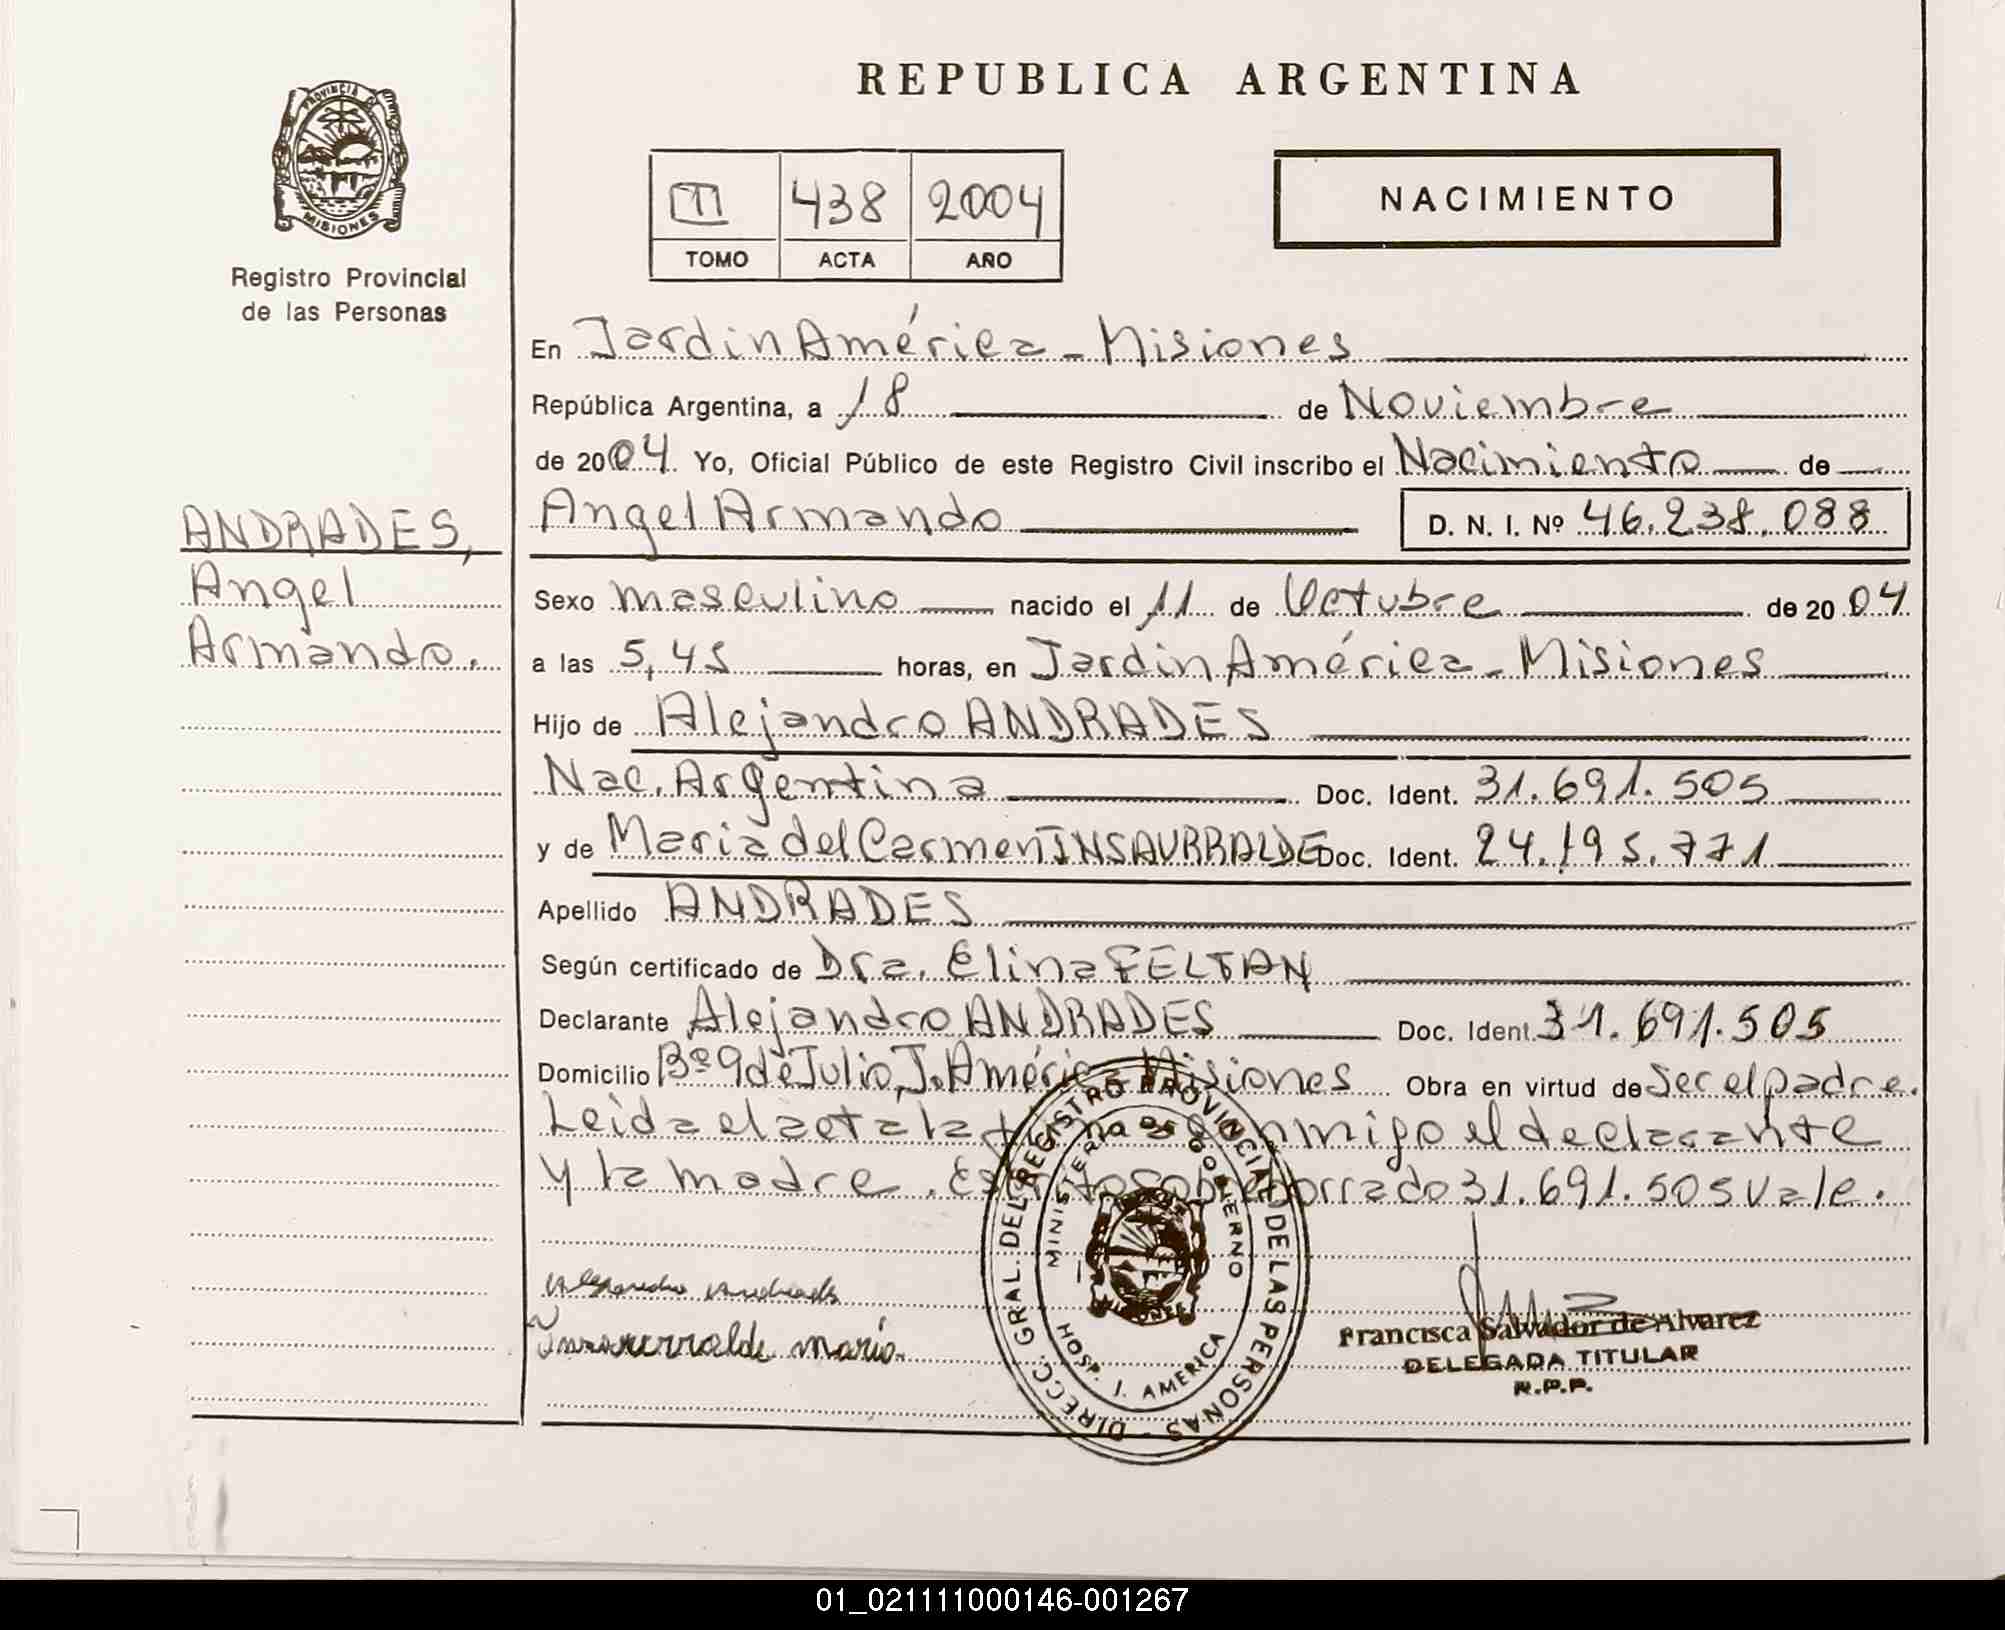 REPUBLICA ARGENTINA
PROVINCIA DE
MISIONES
Registro Provincial
de las Personas
438 2004
TOMO ACTA AÑO
NACIMIENTO
En Jardin América - Misiones
República Argentina, a 18 de Noviembre
de 2004 Yo, Oficial Público de este Registro Civil inscribo el Nacimiento de
ANDRADES,
Angel
Armando.
Angel Armando D. N. I. Nº 46.238.088
Sexo masculino nacido el 11 de Octubre de 2004
a las 5,45 horas, en Jardin América - Misiones
Hijo de Alejandro ANDRADES
Nac. Argentina Doc. Ident. 31.691.505
y de Maria del Carmen INSAURRALDE Doc. Ident. 24.195.771
Apellido ANDRADES
Según certificado de Dra. Elina FELTAN
Declarante Alejandro ANDRADES Doc. Ident. 31.691.505
Domicilio Bº 9 de Julio, J. América Misiones Obra en virtud de Ser el padre.
Leida el acta la firma conmigo el declarante
y la madre. Escrito sobreborrado 31.691.505 Vale.
DIRECC. GRAL. DEL REGISTRO PROVINCIAL DE LAS PERSONAS -
MINISTERIO DE GOBIERNO
MISIONES
HOSP. J. AMERICA
Alejandro Andrades
Insaurralde maria.
Francisca Salvador de Alvarez
DELEGADA TITULAR
R.P.P.
01_021111000146-001267